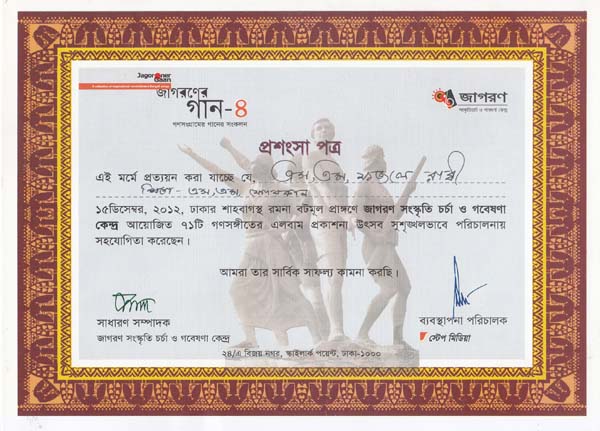 Jagoroner Gaan
জাগরণের
গান-৪
গণসংগ্রামের গানের সংকলন
জাগরণ
সংস্কৃতি চর্চা ও গবেষণা কেন্দ্র
প্রশংসা পত্র
এই মর্মে প্রত্যয়ন করা যাচ্ছে যে, এম, এম, ফজলে রাব্বী
পিতা - এম, এম,
১৫ডিসেম্বর, ২০১২, ঢাকার শাহবাগস্থ রমনা বটমূল প্রাঙ্গণে জাগরণ সংস্কৃতি চর্চা ও গবেষণা
কেন্দ্র আয়োজিত ৭১টি গণসঙ্গীতের এলবাম প্রকাশনা উৎসব সুশৃঙ্খলভাবে পরিচালনায়
সহযোগিতা করেছেন।
আমরা তার সার্বিক সাফল্য কামনা করছি।
সাধারণ সম্পাদক
জাগরণ সংস্কৃতি চর্চা ও গবেষণা কেন্দ্র
ব্যবস্থাপনা পরিচালক
স্টেপ মিডিয়া
২৪/এ বিজয় নগর, স্কাইলার্ক পয়েন্ট, ঢাকা-১০০০